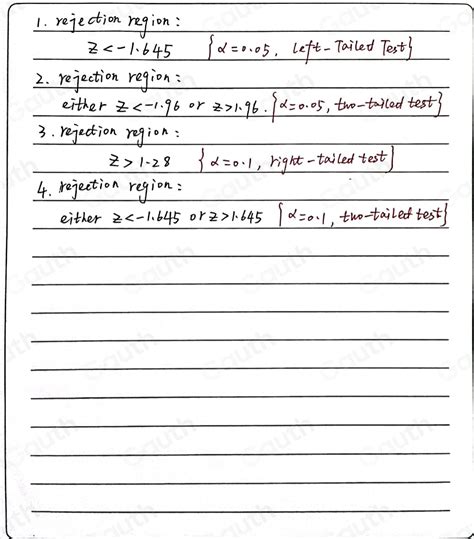 1. rejection region:
z < -1.645 {α=0.05, Left-Tailed Test}
2. rejection region:
either z < -1.96 or z > 1.96. {α=0.05, two-tailed test}
3. rejection region:
z > 1.28 {α=0.1, right-tailed test}
4. rejection region:
either z < -1.645 or z > 1.645 {α=0.1, two-tailed test}